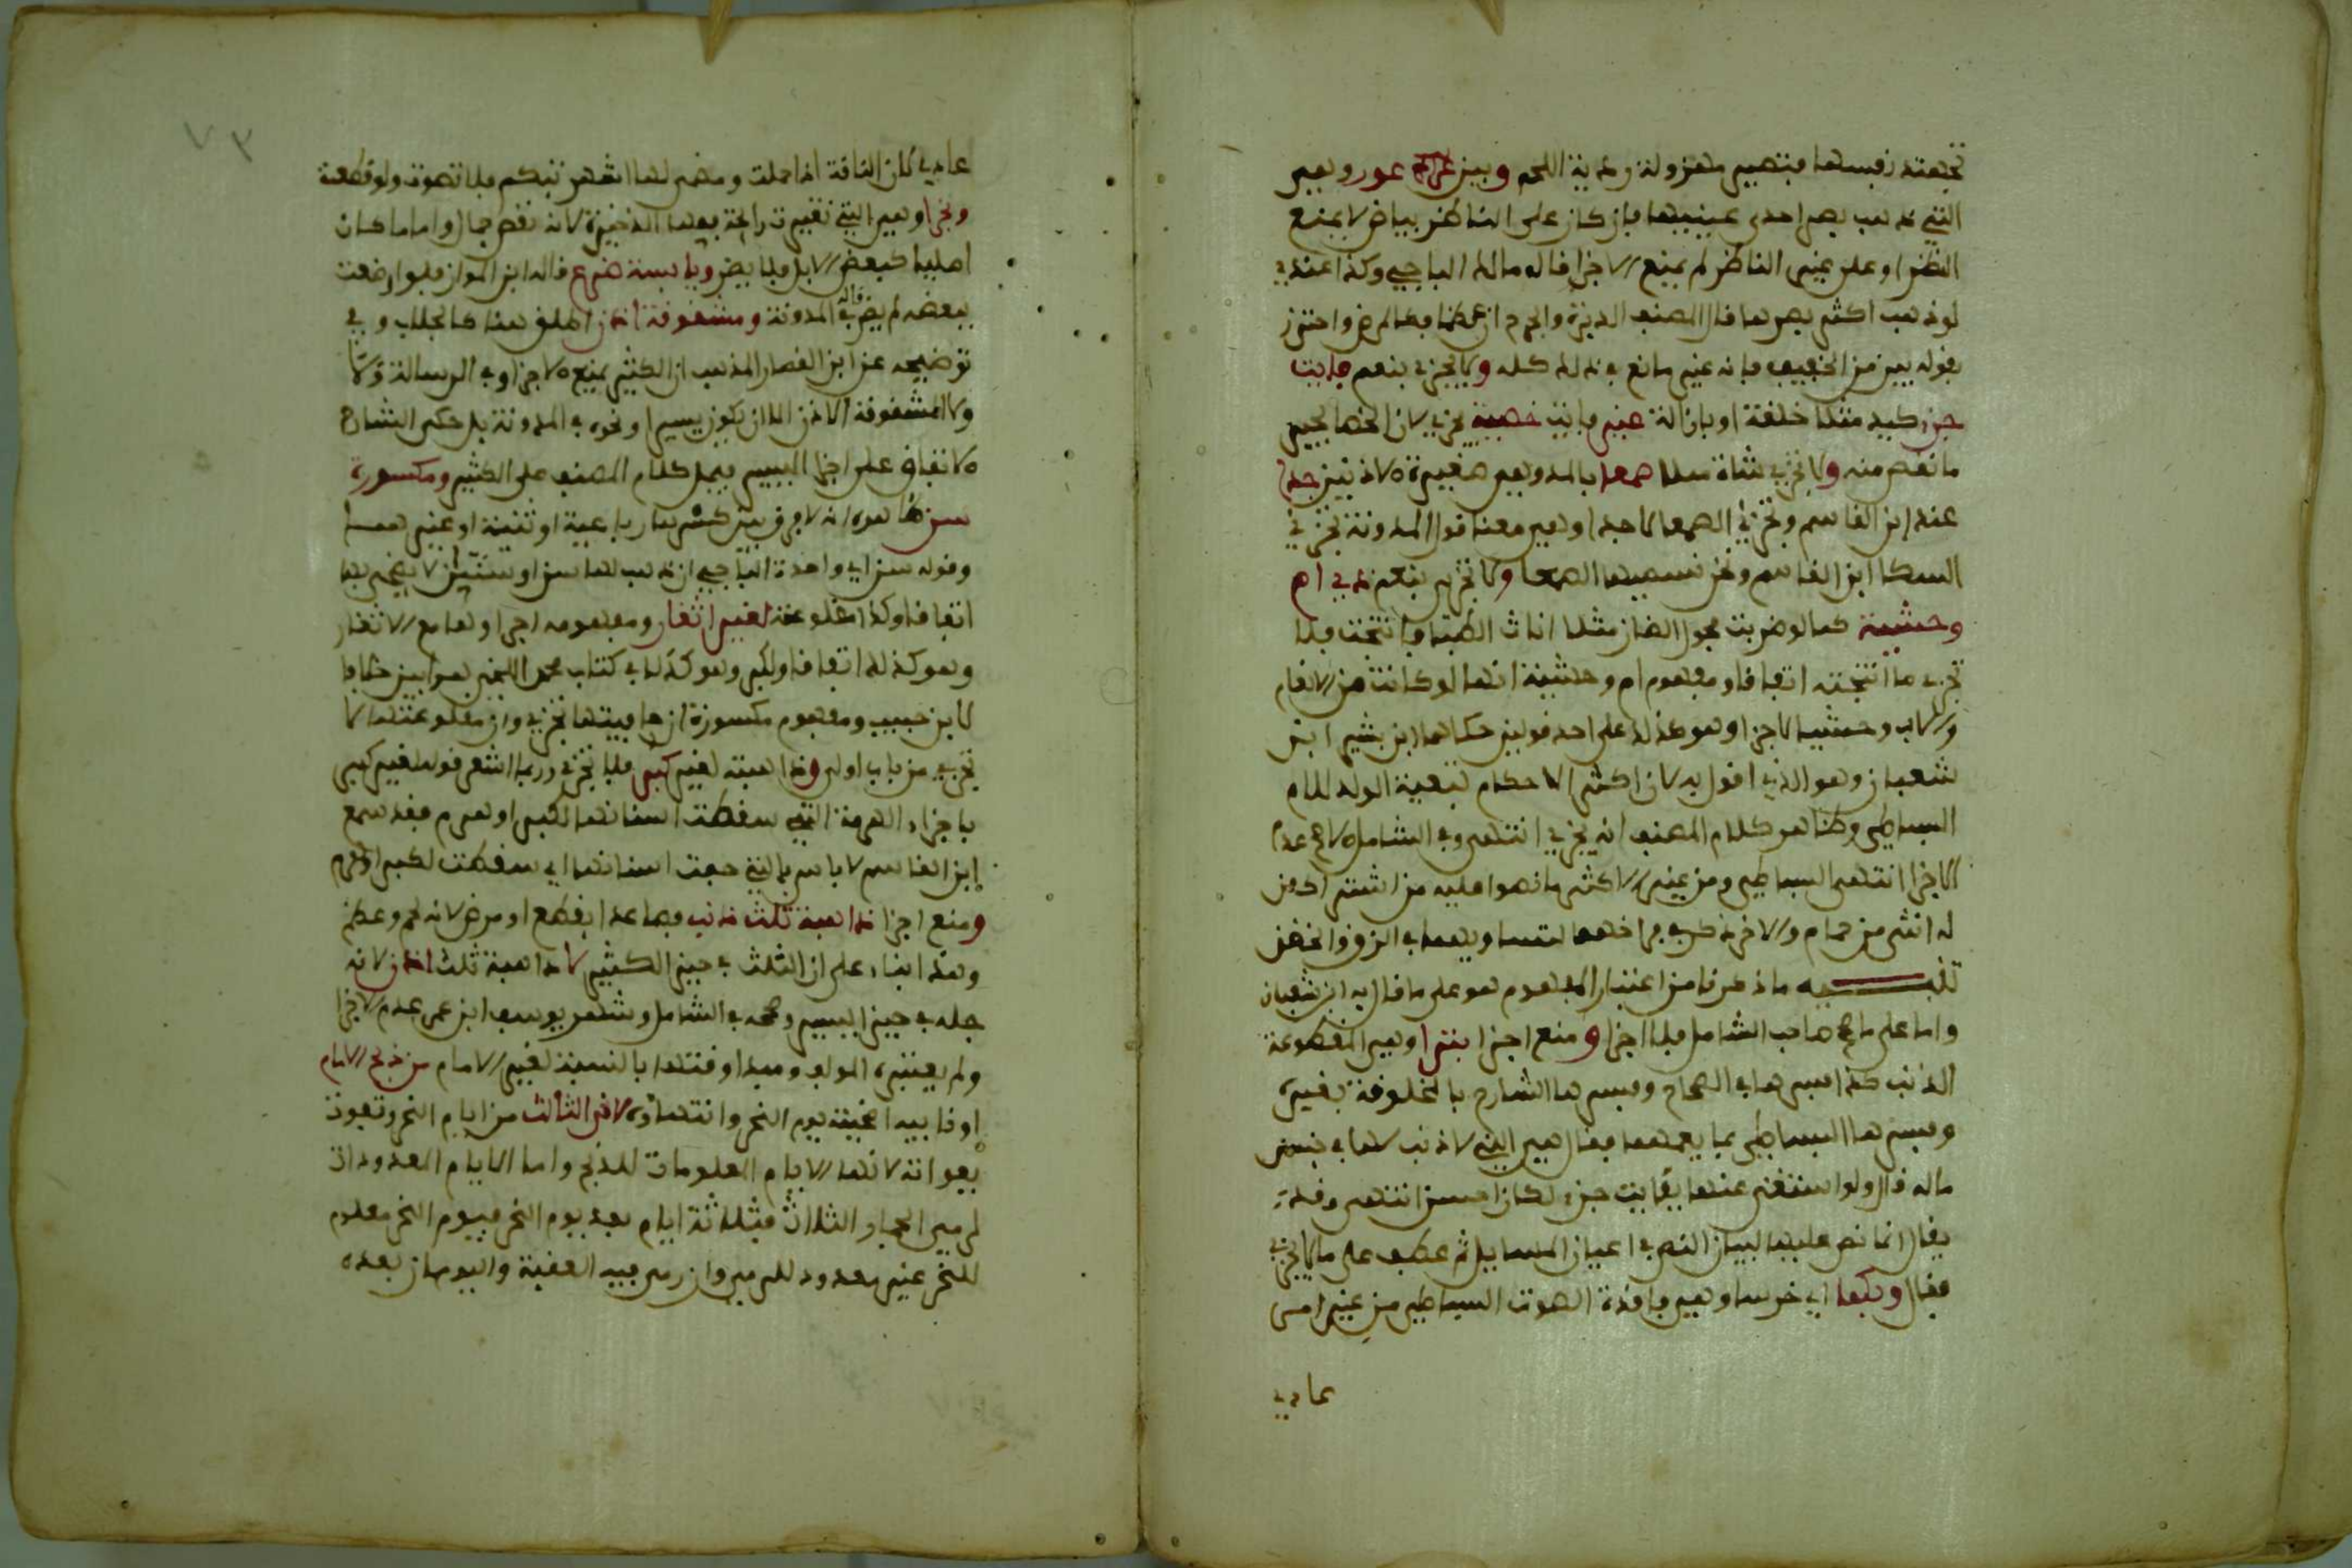 تجهد نفسها فتصير مهزولة رديئة اللحم وبين عرج عور وهي
التي ذهب بصر احدى عينيها فان كان على الناظر بياض لا يمنع
النظر او على غير الناظر لم يمنع الاجزا قاله مالك الباجي وكذا عندي
لو ذهب اكثر بصرها قال المصنف الدبرة والجرح ان عظما فكالمرض واحترز
بقوله بين من الخفيف فانه غير مانع في ذلك كله ولا يجزئ بنعم فايت
جزء كيد مثلا خلقة او بازالة غير فايت خصية يجزي لان الخصا يجبر
ما نقص منه ولا تجزي شاة مثلا صمعا بالمد وهي صغيرة الاذنين جدا
عند ابن القاسم وتجزئ الصمعا لا جدا وهي معنا قول المدونة تجزئ
السكا ابن القاسم ونحن نسميها الصمعا ولا تجزي بنعم ذي ام
وحشية كما لو ضربت فحول الضان مثلا اناث الظبا فانتجت فلا
تجزي ما انتجته اتفاقا ومفهوم ام وحشية انها لو كانت من الانعام
والاب وحشيا لاجزا وهو كذلك على احد قولين حكاهما ابن بشير ابن
شعبان وهو الذي اقول به لان اكثر الاحكام تبعية الولد للام
البساطي وظاهر كلام المصنف انه يجزي انتهى وفي الشامل الاصح عدم
الاجزا انتهى البساطي ومن غير الاكثر ما نصوا عليه من اشترا كون
له انثى من حمام والاخر ذكر في فراخهما لتساويهما في الزق والحضن
تنبيه ما ذكرنا من اعتبار المفهوم هو على ما قال به ابن شعبان
واما على ما صحح صاحب الشامل فلا اجزا ومنع اجزا بترا وهي المقطوعة
الذنب كذا فسرها في الصحاح وفسرها الشارح بالمخلوقة بغيره
وفسرها البساطي بما يعمهما فقال هي التي لا ذنب لها في جنس
ماله قال ولو استغنى عنها بفايت جزء لكان احسن انتهى وقد
يقال انما نص عليها لبيان النص في اعيان المسايل ثم عطف على ما لا يجزي
فقال وبكما اي خرسا وهي فاقدة الصوت البساطي من غير امر
عادي
٧٣
عادي لان الناقة اذا حملت ومضى لها اشهر تبكم فلا تصوت ولو قطعت
وبخرا وهي التي تغيرت رايحة فمها الذخيرة لانه نقص جمال واما ما كان
اصليا كبعض الابل فلا يضر ويابسة ضرع قاله ابن المواز فلو ارضعت
ببعضه لم يضر قاله في المدونة ومشقوقة اذن اطلق هنا كالجلاب وفي
توضيحه عن ابن القصار المذهب ان الكثير يمنع الاجزا وفي الرسالة ولا
ولا المشقوقة الاذن الا ان يكون يسيرا ونحوه في المدونة بل حكى الشارح
الاتفاق على اجزا اليسير فيحمل كلام المصنف على الكثير ومكسورة
سن ظاهره انه لا فرق بين كسرها رباعية او ثنية او غيرهما
وقوله سن اي واحدة الباجي ان ذهب لها سن او سنتان لا يضحى بها
اتفاقا وكذا مقلوعة لغير اثغار ومفهومه اجزاوها مع الاثغار
وهو كذلك اتفاقا ولكبر وهو كذلك في كتاب محمد اللخمي هو ابين خلافا
لابن حبيب ومفهوم مكسورة ان حافيتها تجزي وان مقلوعتها لا
تجزي من باب اولى وذاهبته لغير كبر فلا تجزئ وربما اشعر قوله لغير كبر
باجزاء الهرمة التي سقطت اسنانها لكبر او هرم فقد سمع
ابن القاسم لا باس بالتي حفت اسنانها اي سقطت لكبر او هرم
ومنع اجزا ذاهبة ثلث ذنب فصاعدا بقطع او مرض لانه لحم وعظم
وهذا بناء على ان الثلث في حيز الكثير لا ذاهبة ثلث اذن لانه
جله في حيز اليسير وصححه في الشامل وشهر يوسف ابن عمر عدم الاجزا
ولم يعتبره المولف ومبدا وقتها بالنسبة لغير الامام من ذبح الامام
او نايبه اضحيته يوم النحر وانتهاوه لاخر الثالث من ايام النحر وتفوت
بفواته لانها الايام المعلومات للذبح واما الايام المعدودات
لرمي الجمار الثلاث فثلاثة ايام بعد يوم النحر فيوم النحر معلوم
للنحر غير معدود للرمي وان رمى فيه العقبة واليومان بعده